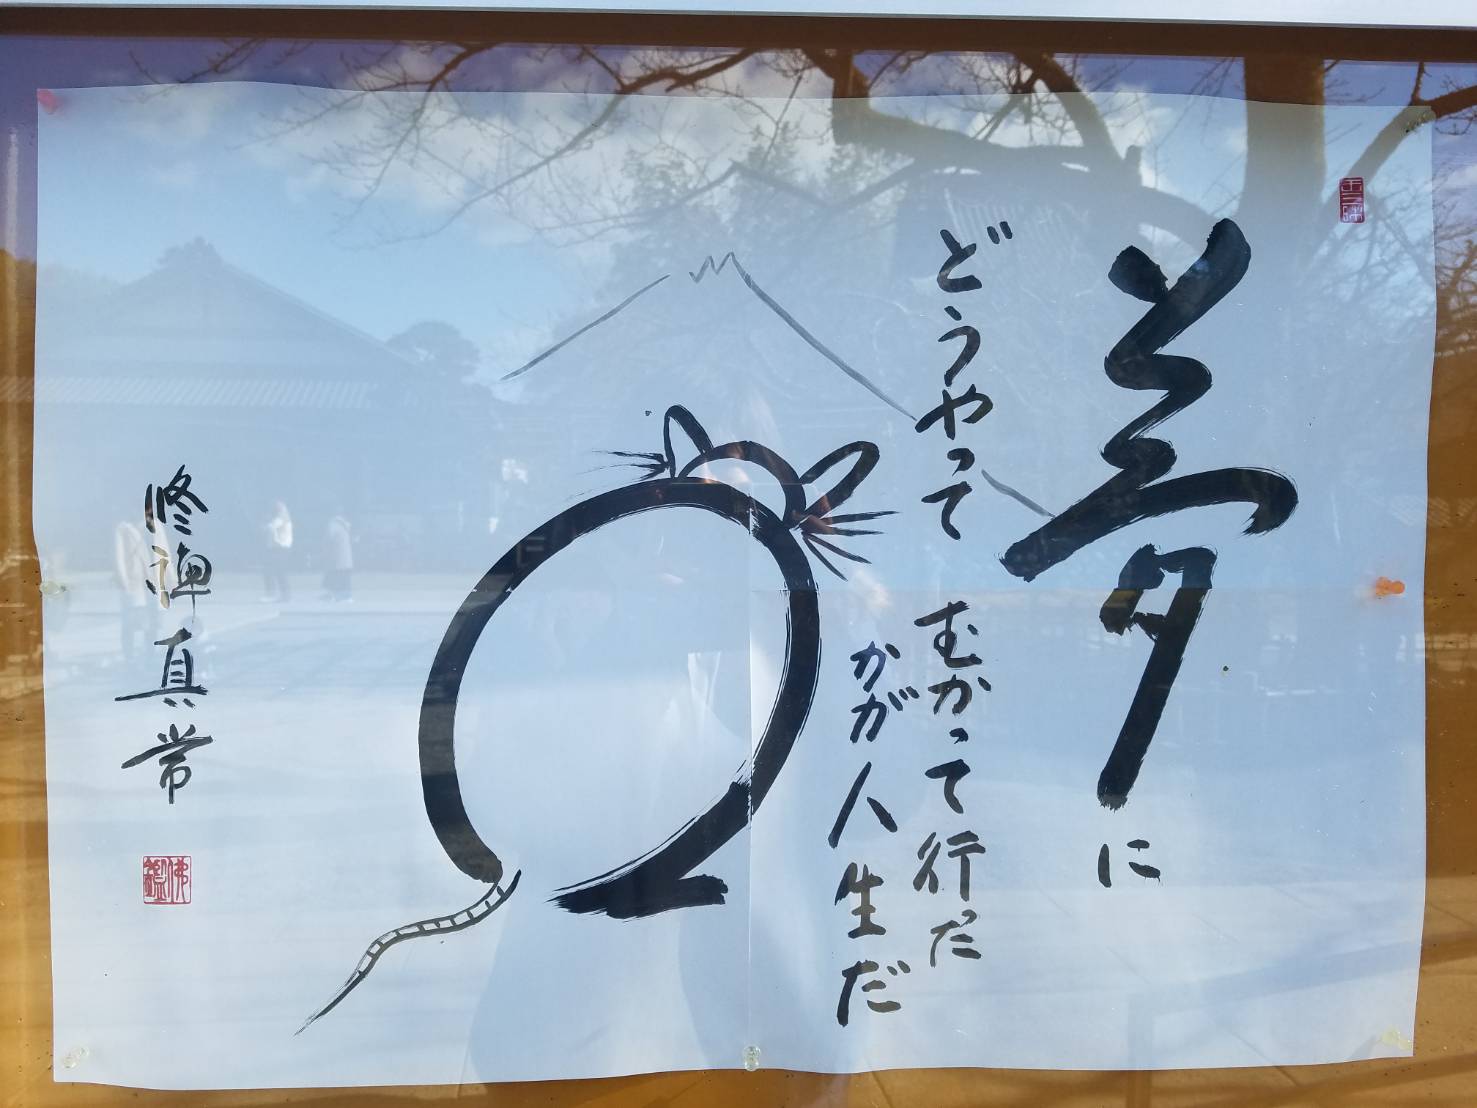 夢に
どうやって むかって行った
かが人生だ
修禅真常
佛鑑